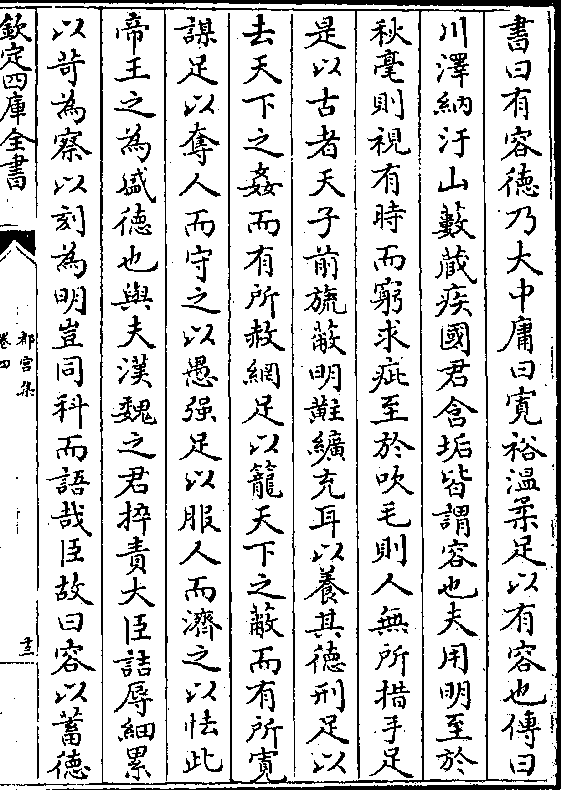 書曰有容德乃大中庸曰寛裕温柔足以有容也傳曰
川澤納汙山藪蔵疾國君含垢皆謂容也夫用明至於
秋毫則視有時而窮求疵至於吹毛則人無所措手足
是以古者天子前旒蔽明黈纊充耳以養其德刑足以
去天下之姦而有所赦網足以籠天下之蔽而有所寛
謀足以奪人而守之以愚强足以服人而濟之以怯此
帝王之為盛德也與夫漢魏之君捽責大臣詰辱細累
以苛為察以刻為明豈同科而語哉臣故曰容以蓄德
欽定四庫全書
都官集
卷四
十三